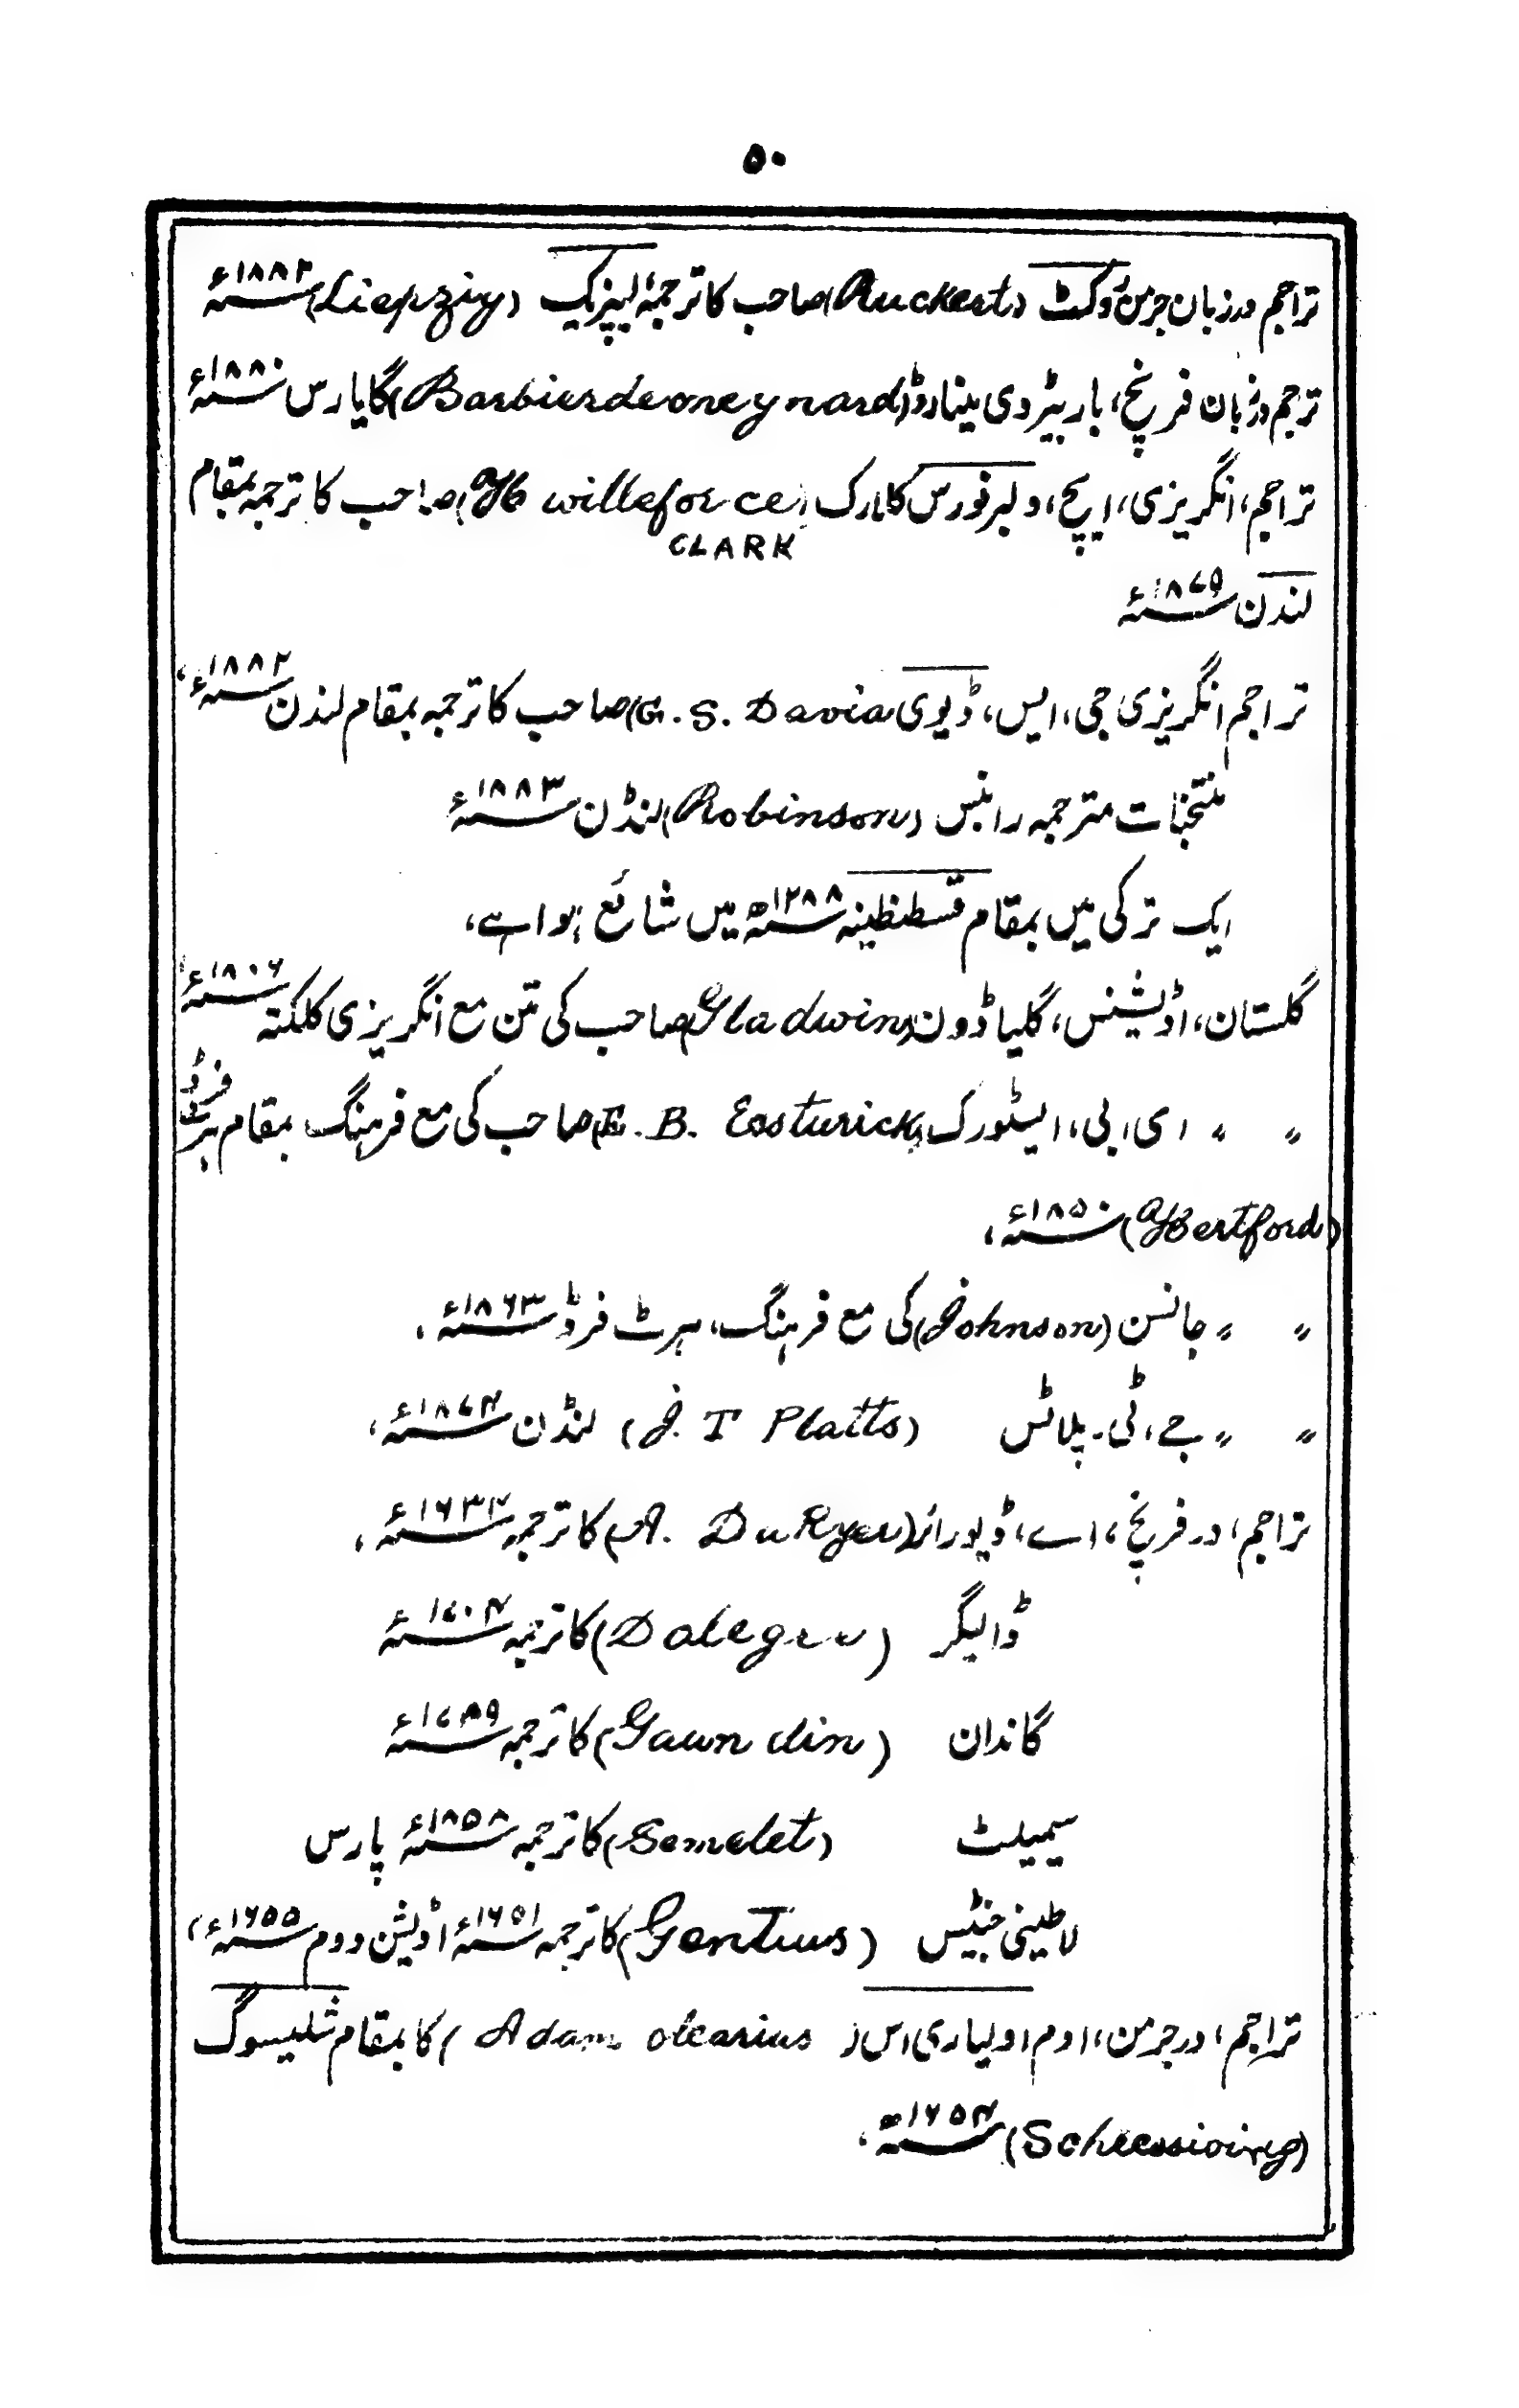 ۵۰
تراجم در زبان جرمن رُوکٹ (Ruckert) صاحب کا ترجمۂ لیپزیک (Liepziy) ۱۸۸۲ء
ترجم در زبان فرینچ، باربیٹر دی مینارڈ (Barbierdeoneynard) کا پارس ۱۸۸۰ء
تراجم، انگریزی، ایچ، ولبرفورس کلارک (H willeforce) صاحب کا ترجمہ بمقام
CLARK
لندن ۱۸۷۹ء
تراجم انگریزی جی، ایس، ڈیوی (G. S. Davia) صاحب کا ترجمہ بمقام لندن ۱۸۸۲ء،
منتخبات مترجمہ رابنس (Robinson) لنڈن ۱۸۸۳ء
ایک ترکی میں بمقام قسطنطنیہ ۱۲۸۸ھ میں شائع ہوا ہے،
گلستان، اڈیشنس، گلیاڈون (Gladwin) صاحب کی متن مع انگریزی کلکتہ ۱۸۰۶ء
〃 〃 ای، بی، ایسٹورک (E. B. Easturick) صاحب کی مع فرہنگ بمقام ہرٹ فرڈ
(Hertford) ۱۸۵۰ء،
〃 〃 جانسن (Johnson) کی مع فرہنگ، ہرٹ فرڈ ۱۸۶۳ء،
〃 〃 جے، ٹی۔ پلاٹس (J. T Platts) لنڈن ۱۸۷۴ء،
تراجم، در فرینچ، اے، ڈیورائر (A. DuRyer) کا ترجمہ ۱۶۳۴ء،
ڈالیگر (Dalegre) کا ترجمہ ۱۷۰۴ء
گاندان (Gaundin) کا ترجمہ ۱۷۸۹ء
سیمیلٹ (Semelet) کا ترجمہ ۱۸۵۸ء پارس
لاطینی جنٹیس (Gentius) کا ترجمہ ۱۶۵۱ء اڈیشن دوم ۱۶۵۵ء)
تراجم، در جرمن، ادم اولیاری اس (Adam olearius) کا بمقام شلیسوگ
(Scheessioing) ۱۶۵۴ھ،